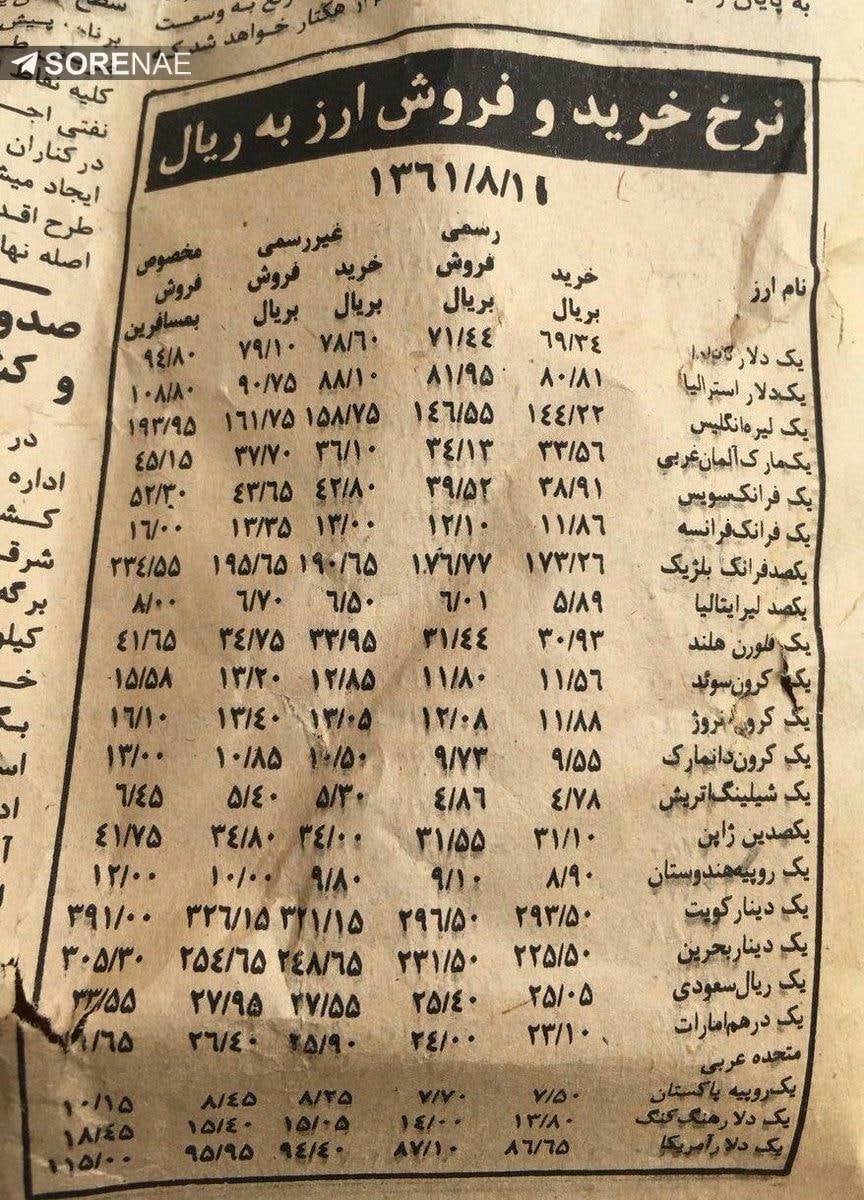 به پایان
هکتار خواهد شد که
به وسعت
سطح
SORENAE
کلیه نقاط
نفتی اجـ
در کناران
ایجاد میشـ
طرح اقد
اصله نها
صدو
و کش
در
اداره
کـشـ
شرقـ
برگه
کیلو
خـا
بـگـ
نرخ خرید و فروش ارز به ریال
۱۳۶۱/۸/۱۱
رسمی غیررسمی مخصوص
نام ارز خرید فروش خرید فروش فروش
بریال بریال بریال بریال بمسافرین
یک دلار کانادا ۶۹/۳۴ ۷۱/۴۴ ۷۸/۶۰ ۷۹/۱۰ ۹۴/۸۰
یکدلار استرالیا ۸۰/۸۱ ۸۱/۹۵ ۸۸/۱۰ ۹۰/۷۵ ۱۰۸/۸۰
یک لیره انگلیس ۱۴۴/۲۲ ۱۴۶/۵۵ ۱۵۸/۷۵ ۱۶۱/۷۵ ۱۹۳/۹۵
یکمارک آلمان غربی ۳۳/۵۶ ۳۴/۱۳ ۳۶/۱۰ ۳۷/۷۰ ۴۵/۱۵
یک فرانک سویس ۳۸/۹۱ ۳۹/۵۲ ۴۲/۸۰ ۴۳/۶۵ ۵۲/۳۰
یک فرانک فرانسه ۱۱/۸۶ ۱۲/۱۰ ۱۳/۰۰ ۱۳/۳۵ ۱۶/۰۰
یکصد فرانک بلژیک ۱۷۳/۲۶ ۱۷۶/۷۷ ۱۹۰/۶۵ ۱۹۵/۶۵ ۲۳۴/۵۵
یکصد لیر ایتالیا ۵/۸۹ ۶/۰۱ ۶/۵۰ ۶/۷۰ ۸/۰۰
یک فلورن هلند ۳۰/۹۳ ۳۱/۴۴ ۳۳/۹۵ ۳۴/۷۵ ۴۱/۶۵
یک کرون سوئد ۱۱/۵۶ ۱۱/۸۰ ۱۲/۸۵ ۱۳/۲۰ ۱۵/۵۸
یک کرون نروژ ۱۱/۸۸ ۱۲/۰۸ ۱۳/۰۵ ۱۳/۴۰ ۱۶/۱۰
یک کرون دانمارک ۹/۵۵ ۹/۷۳ ۱۰/۵۰ ۱۰/۸۵ ۱۳/۰۰
یک شیلینگ اتریش ۴/۷۸ ۴/۸۶ ۵/۳۰ ۵/۴۰ ۶/۴۵
یکصد ین ژاپن ۳۱/۱۰ ۳۱/۵۵ ۳۴/۰۰ ۳۴/۸۰ ۴۱/۷۵
یک روپیه هندوستان ۸/۹۰ ۹/۱۰ ۹/۸۰ ۱۰/۰۰ ۱۲/۰۰
یک دینار کویت ۲۹۳/۵۰ ۲۹۶/۵۰ ۳۲۱/۱۵ ۳۲۶/۱۵ ۳۹۱/۰۰
یک دینار بحرین ۲۲۵/۵۰ ۲۳۱/۵۰ ۲۴۸/۶۵ ۲۵۴/۶۵ ۳۰۵/۳۰
یک ریال سعودی ۲۵/۰۵ ۲۵/۴۰ ۲۷/۵۵ ۲۷/۹۵ ۳۳/۵۵
یک درهم امارات ۲۳/۱۰ ۲۴/۰۰ ۲۵/۹۰ ۲۶/۴۰
متحده عربی
یک روپیه پاکستان ۷/۵۰ ۷/۷۰ ۸/۲۵ ۸/۴۵ ۱۰/۱۵
یک دلار هنگ کنگ ۱۳/۸۰ ۱۴/۰۰ ۱۵/۰۵ ۱۵/۴۰ ۱۸/۴۵
یک دلار آمریکا ۸۶/۶۵ ۸۷/۱۰ ۹۴/۴۰ ۹۵/۹۵ ۱۱۵/۰۰